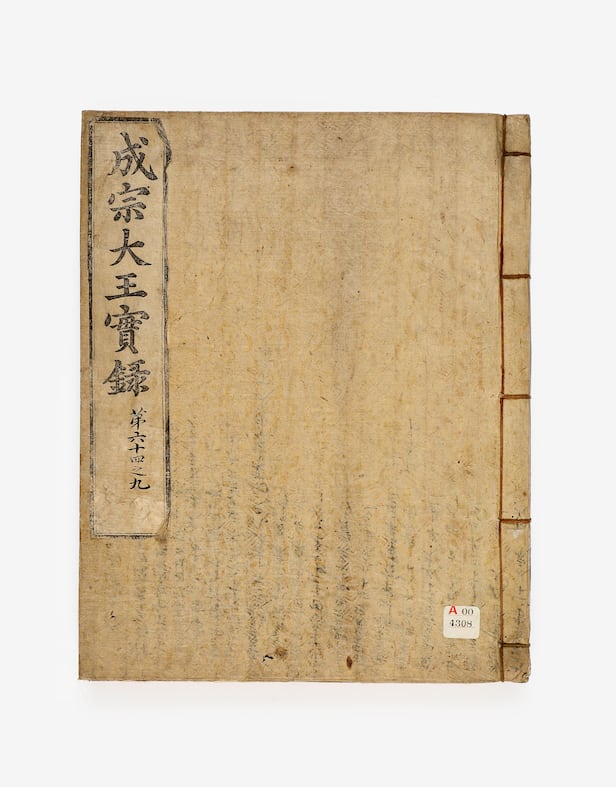 成宗大王實錄
第六十四之九
A 00
4308